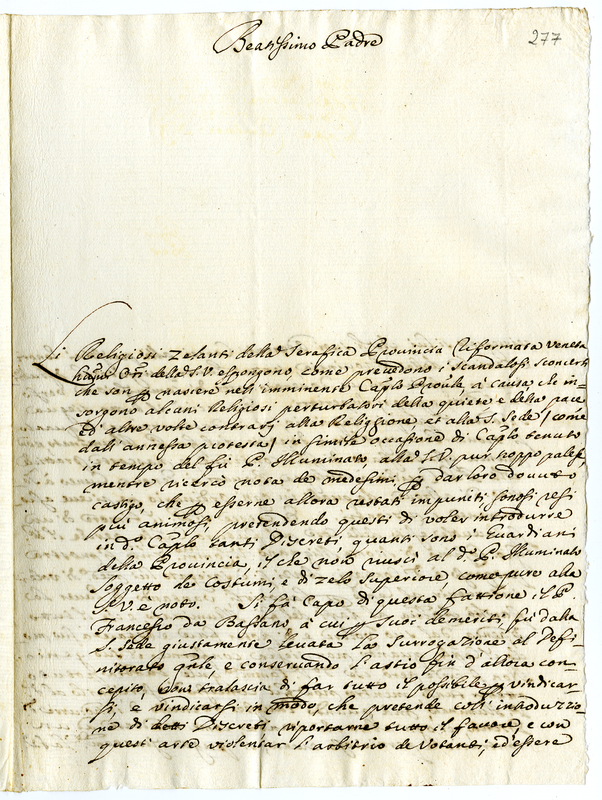 Beatissimo Padre
277
Li Religiosi Zelanti della Serafica Provincia Riformata Veneta
della S.V. espongono come prevedono i scandalosi sconcerti
che son p nascere nell imminente Caplo Pnoule à causa, che in-
sorgono alcuni Religiosi perturbatori della quiete e della pace
ed altre volte contrarj alla Religione et alla S. Sede / come
dall annessa protesta / in simile occasione di Caplo tenuto
in tempo del fù P. Illuminato alla S.V. pur troppo palese,
mentre ricercò nota de medesimi p dar loro douuto
castigo, che p esserne allora restati impuniti sonosi resi
più animosi, pretendendo questi di voler introdurre
in d.º Caplo tanti Discreti, quanti sono i Guardiani
della Provincia, il che non riuscì al d.º P. Illuminato
soggetto de Costumi, e di zelo superiore, come pure alla
S.V. è noto. Si fà Capo di questa fattione il P.
Francesco da Bassano à cui p suoi demeriti, fù dalla
S. Sede giustamente levata la surrogazione al Defi-
nitorato gnle, e conservando l'astio fin d'allora con-
cepito, non tralascia di far tutto il possibile p vindicar-
si, e vindicarsi in modo, che pretende coll introduzzio-
ne di detti Discreti riportarne tutto il favore, e con
questi arte violentar l'arbitrio de Votanti, ed essere